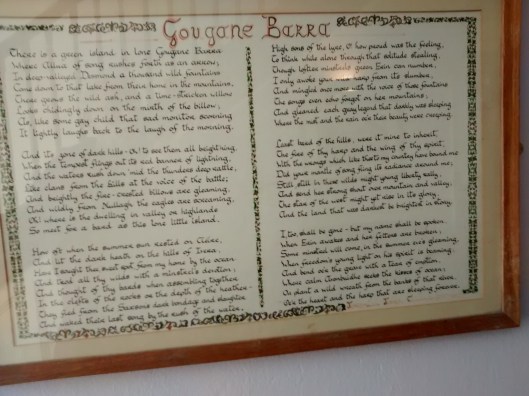 Gougane Barra
There is a green island in lone Gougane Barra
Where Allua of song rushes forth as an arrow;
In deep-vallied Desmond a thousand wild fountains
Come down to that lake from their home in the mountains.
There grows the wild ash, and a time-stricken willow
Looks chidingly down on the mirth of the billow;
As, like some gay child that sad monitor scorning
It lightly laughs back to the laugh of the morning.
And its zone of dark hills - Oh! to see them all bright'ning,
When the tempest flings out its red banner of lightning,
And the waters rush down 'mid the thunders deep rattle,
Like clans from the hills at the voice of the battle;
And brightly the fire-crested billows are gleaming,
And wildly from Mullagh the eagles are screaming,
Oh! where is the dwelling in valley or highlands
So meet for a bard as this lone little island.
How oft when the summer sun rested on Clara,
And lit the dark heath on the hills of Ivera,
Have I sought thee sweet spot from my home by the ocean
And trod all thy wilds with a minstrel's devotion,
And thought of thy bards when assembling together
In the clefts of the rocks or the depth of the heather -
They fled from the Saxons dark bondage and slaughter
And waked their last song by the rush of thy water.
High sons of the lyre, O how proud was the feeling,
To think while alone through that solitude stealing,
Though loftier minstrels green Erin can number,
I only awoke your harp from its slumber,
And mingled once more with the voice of those fountains
The songs even echo forgot on her mountains,
And gleaned each gray legend that darkly was sleeping
Where the mist and the rain o'er their beauty were creeping.
Least bard of the hills, were it mine to inherit,
The fire of thy harp and the wing of thy spirit,
With the wrongs which like thee to my country has bound me
Did your mantle of song fling its radiance around me;
Still still in those wilds might young liberty rally,
And send her strong shout over mountain and valley,
The star of the west might yet rise in its glory,
And the land that was darkest be brightest in story.
I too, shall be gone - but my name shall be spoken
When Erin awakes and her fetters are broken;
Some minstrel will come, in the summer eve's gleaming,
When freedom's young light on his spirit is beaming,
And bend o'er the grave with a tear of emotion,
Where calm Avonbuidhe seeks the kisses of ocean;
Or plant a wild wreath from the banks of that river
O'er the heart and the harp that are sleeping forever.